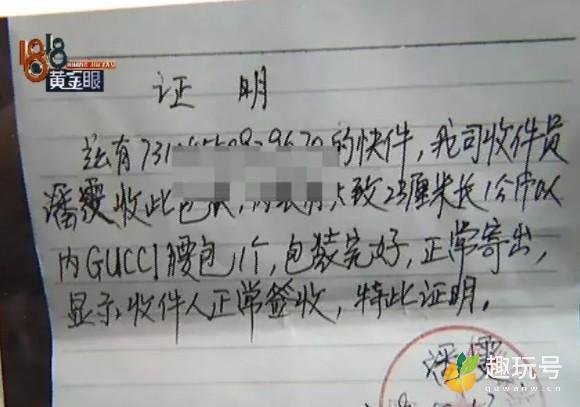 1818
黄金眼
证 明
兹有731 的快件,我司收件员
潘雯收此包裹, 大致23厘米长1公斤以
内GUCCI腰包1个,包装完好,正常寄出,
显示收件人正常签收,特此证明。
潘雯
趣玩号
quwanw.cn